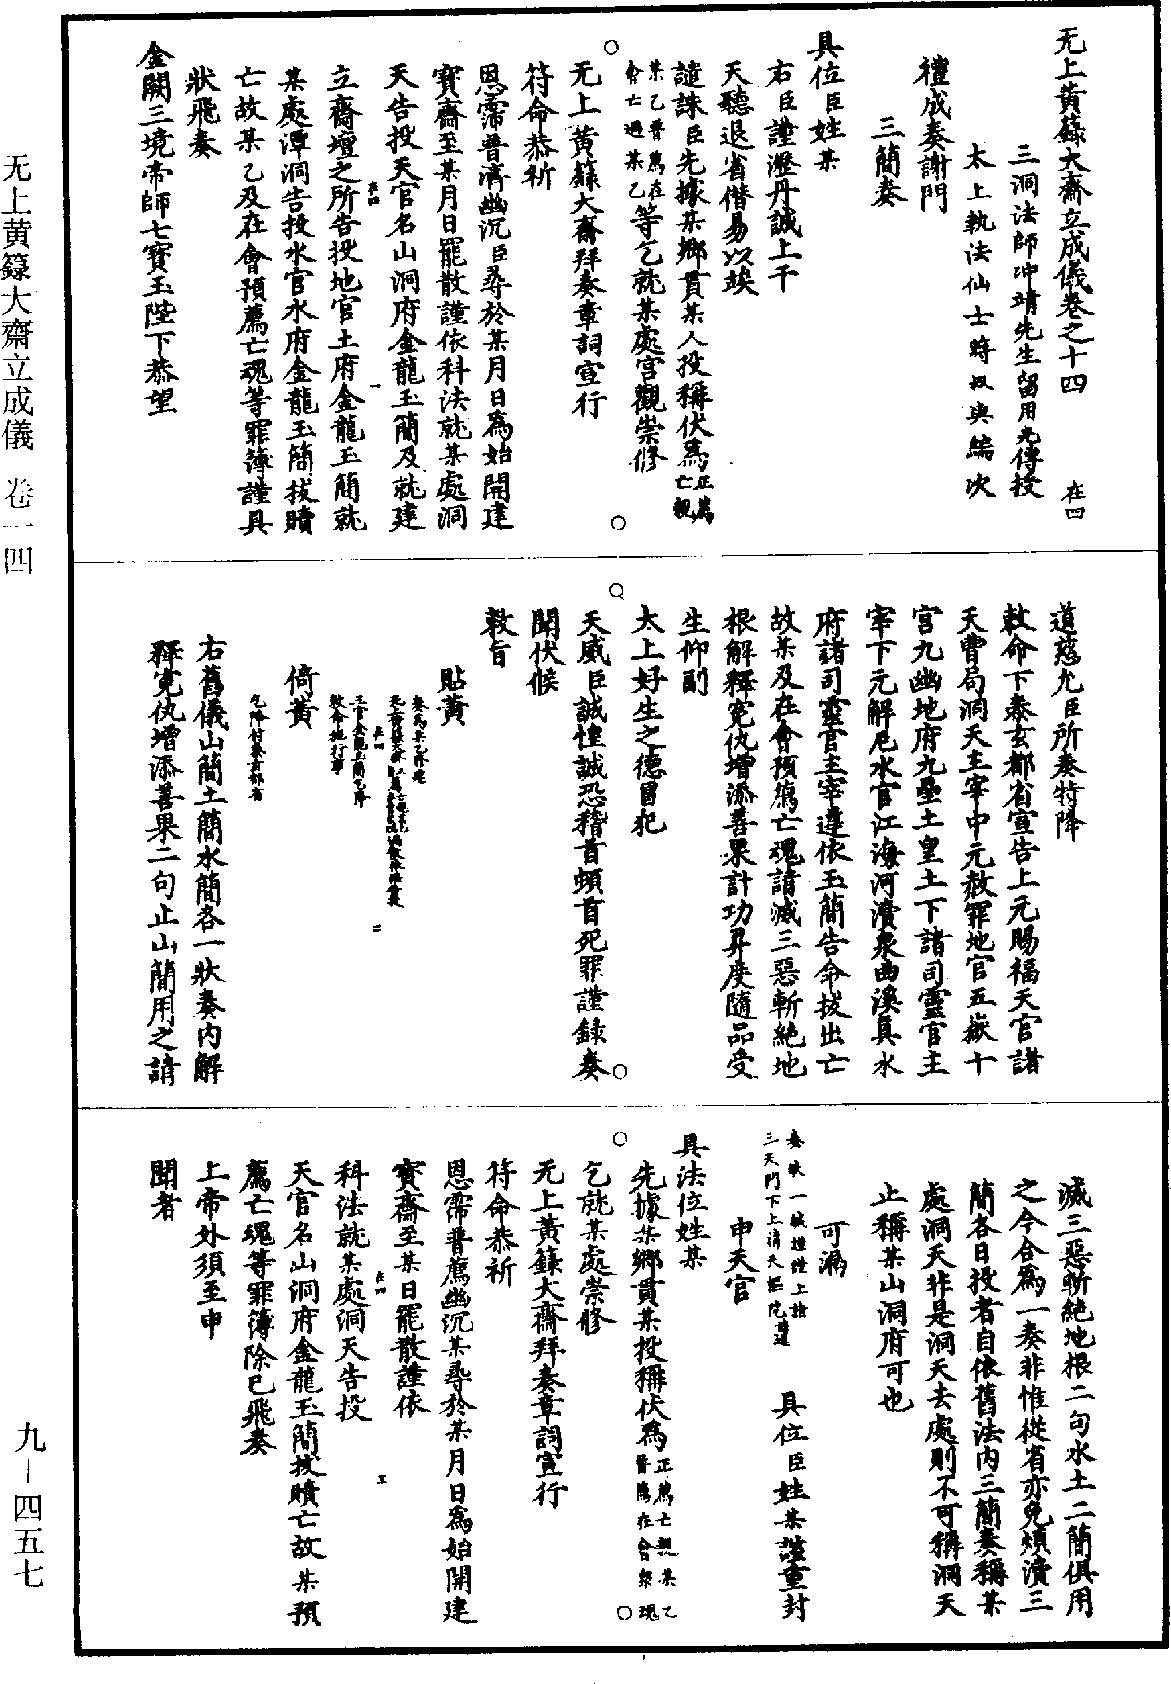 无上黃籙大齋立成儀卷之十四　在四
三洞法師冲靖先生留用光傳授
太上執法仙士蔣叔輿編次
禮成奏謝門
三簡奏
具位臣姓某
右臣謹瀝丹誠上干
天聽退省僭易以竢
譴誅臣先據某鄉貫某人投稱伏為正薦亡親
某乙普薦在會亡過某乙等乞就某處宮觀崇修
无上黃籙大齋拜奏章詞宣行
符命恭祈
恩霈普濟幽沉臣尋於某月日為始開建
寶齋至某月日罷散謹依科法就某處洞
天告投天官名山洞府金龍玉簡及就建
立齋壇之所告投地官土府金龍玉簡就
某處潭洞告投水官水府金龍玉簡拔贖
亡故某乙及在會預薦亡魂等罪簿謹具
狀飛奏
金闕三境帝師七寶玉陛下恭望
道慈允臣所奏特降
敕命下泰玄都省宣告上元賜福天官諸
天曹局洞天主宰中元赦罪地官五嶽十
宮九幽地府九壘土皇土下諸司靈官主
宰下元解厄水官江海河瀆泉曲溪真水
府諸司靈官主宰遵依玉簡告命拔出亡
故某及在會預薦亡魂請滅三惡斬絕地
根解釋冤仇增添善果計功昇度隨品受
生仰副
太上好生之德冒犯
天威臣誠惶誠恐稽首頓首死罪謹錄奏
聞伏候
敕旨
貼黃
奏為某乙修建
三官金龍玉簡乞降
敕命施行事
倚黃
乞降付泰玄都省
右舊儀山簡土簡水簡各一狀奏內解
釋冤仇增添善果二句止山簡用之請
滅三惡斬絕地根二句水土二簡俱用
之今合為一奏非惟從省亦免煩瀆三
簡各日投者自依舊法內三簡奏稱某
處洞天非是洞天去處則不可稱洞天
止稱某山洞府可也
可漏
奏狀一緘謹謹上詣
三天門下上清天樞院請進
具位臣姓某謹重封
申天官
具法位姓某
先據某鄉貫某投稱伏為正薦亡親某乙普薦在會眾魂
乞就某處崇修
无上黃籙大齋拜奏章詞宣行
符命恭祈
恩霈普薦幽沉某尋於某月日為始開建
寶齋至某日罷散謹依
科法就某處洞天告投
天官名山洞府金龍玉簡拔贖亡故某預
薦亡魂等罪簿除已飛奏
上帝外須至申
聞者
无上黄籙大齋立成儀　卷一四
九—四五七